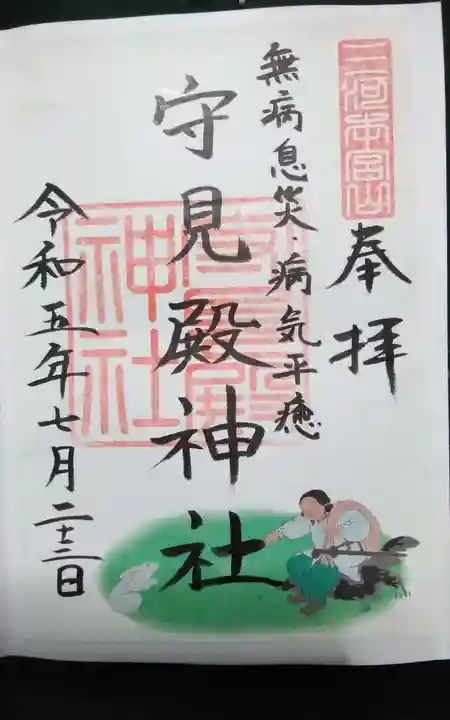 三河本宮山
奉拝
無病息災・病気平癒
守見殿神社
守見殿神社
令和五年七月二十二日